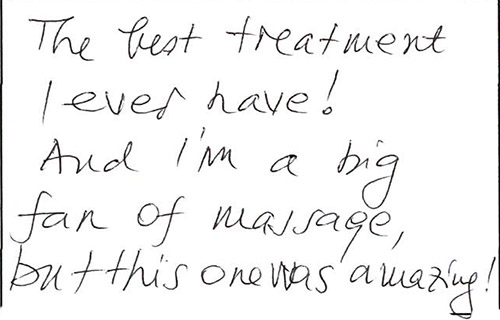 The best treatment
I ever have!
And I'm a big
fan of massage,
but this one was amazing!